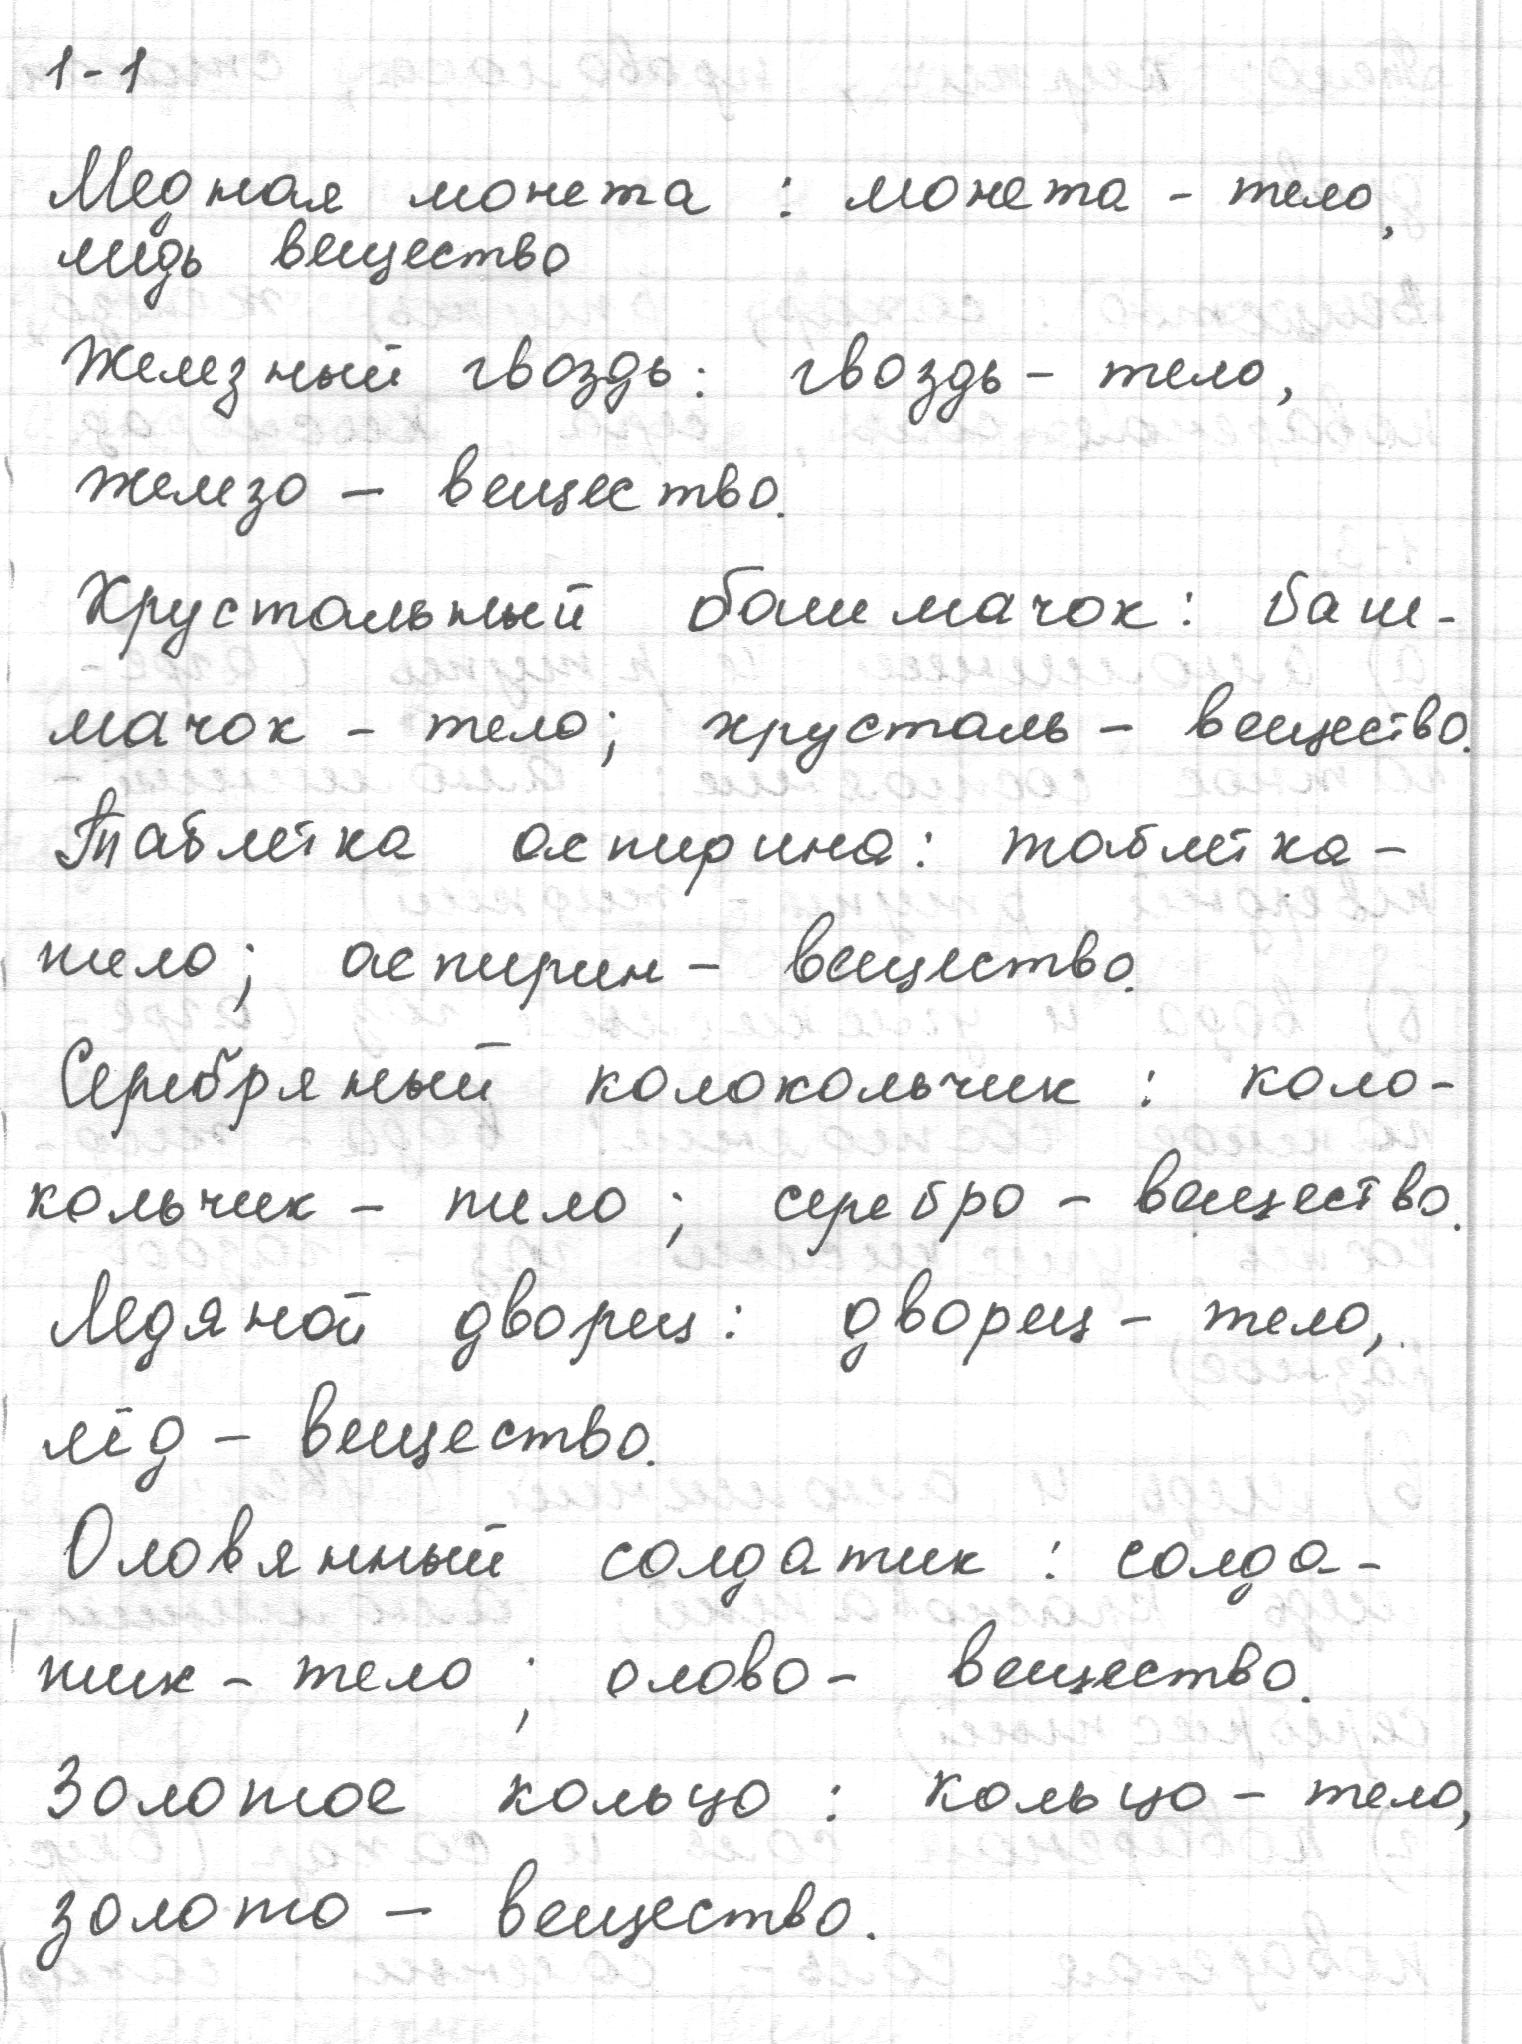 1-1
Медная монета : монета - тело,
медь вещество
Железный гвоздь: гвоздь - тело,
железо - вещество.
Хрустальный башмачок: баш-
мачок - тело; хрусталь - вещество.
Таблетка аспирина: таблетка -
тело; аспирин - вещество.
Серебряный колокольчик : коло-
кольчик - тело ; серебро - вещество.
Ледяной дворец: дворец - тело,
лёд - вещество.
Оловянный солдатик : солда-
тик - тело ; олово - вещество.
Золотое кольцо : кольцо - тело,
золото - вещество.